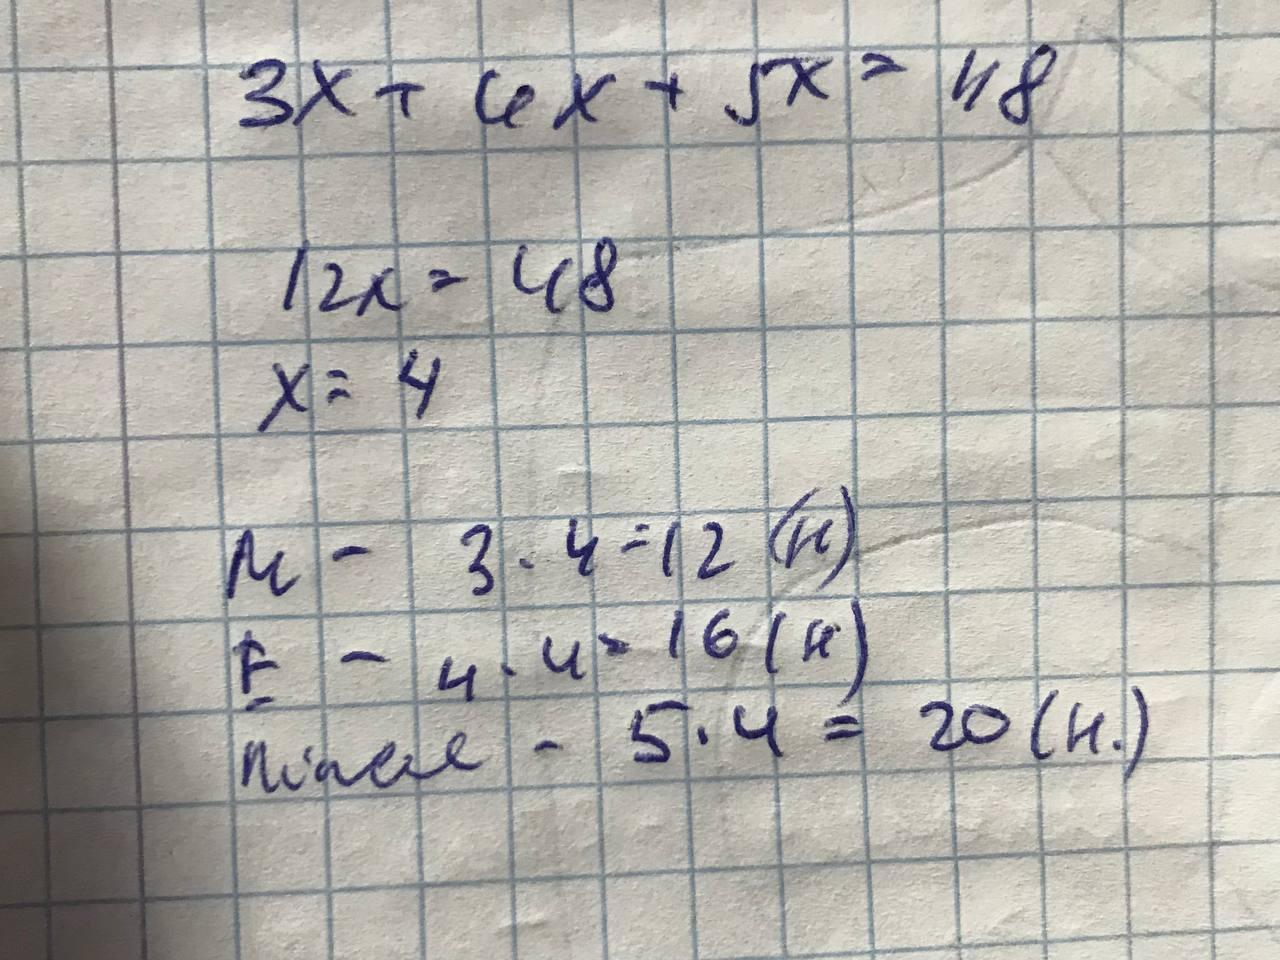 3x + 4x + 5x = 48
12x = 48
x = 4
М - 3·4=12 (н)
Е - 4·4=16 (н)
- 5·4 = 20 (н.)